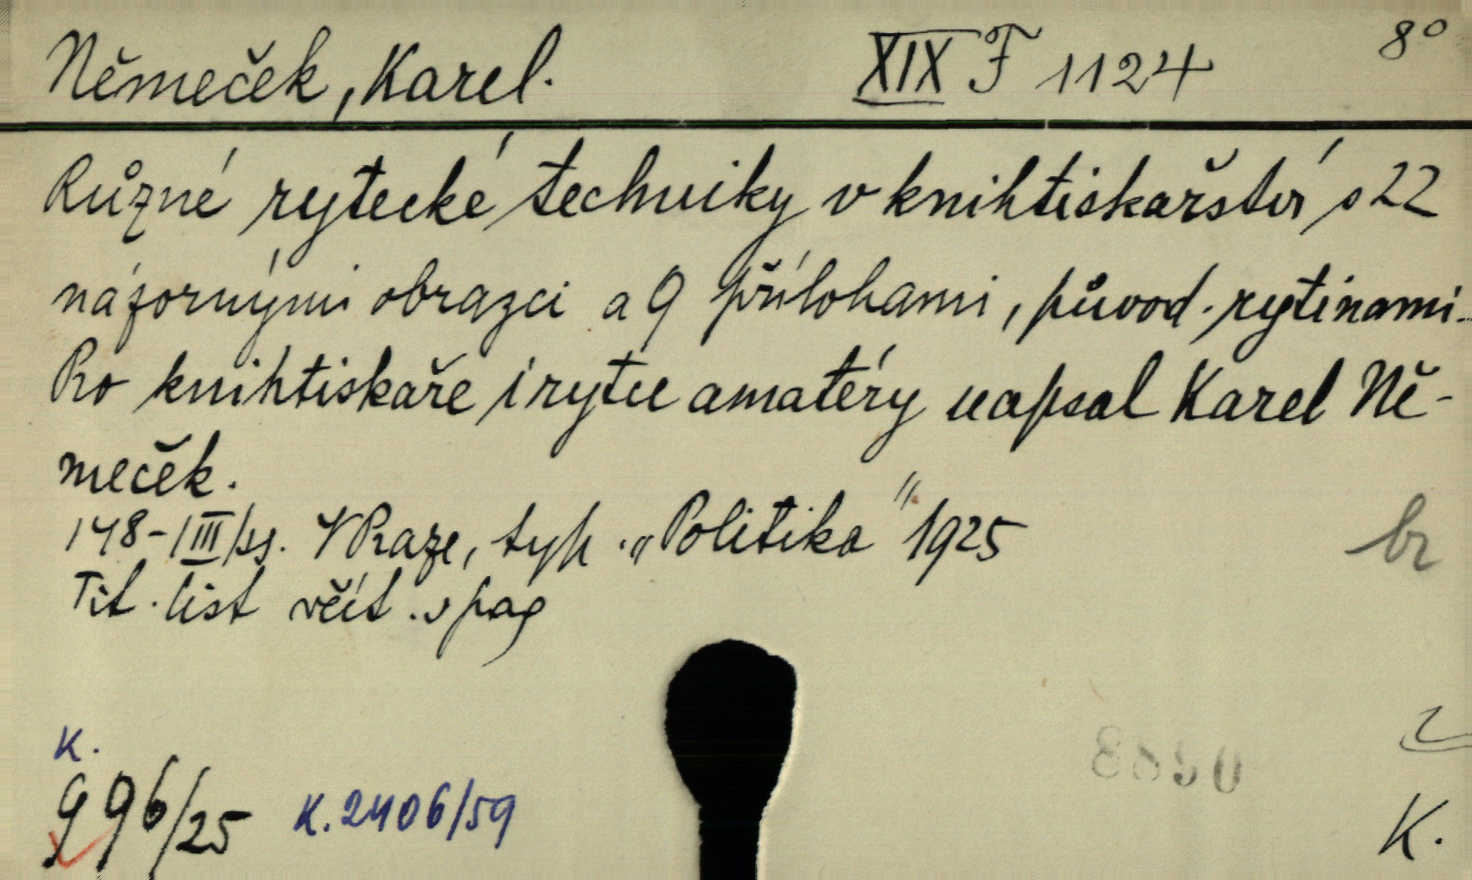 Němeček, Karel. XIX F 1124 8°
Různé rytecké techniky v knihtiskařství s 22
názornými obrazci a 9 přílohami, původ. rytinami.
Pro knihtiskaře i rytce amatéry napsal Karel Ně-
meček.
148-|III|ss. V Praze, typ. „Politika" 1925
br
Tit. list včít. v pag
K.
996/25 K. 2406/59
K.